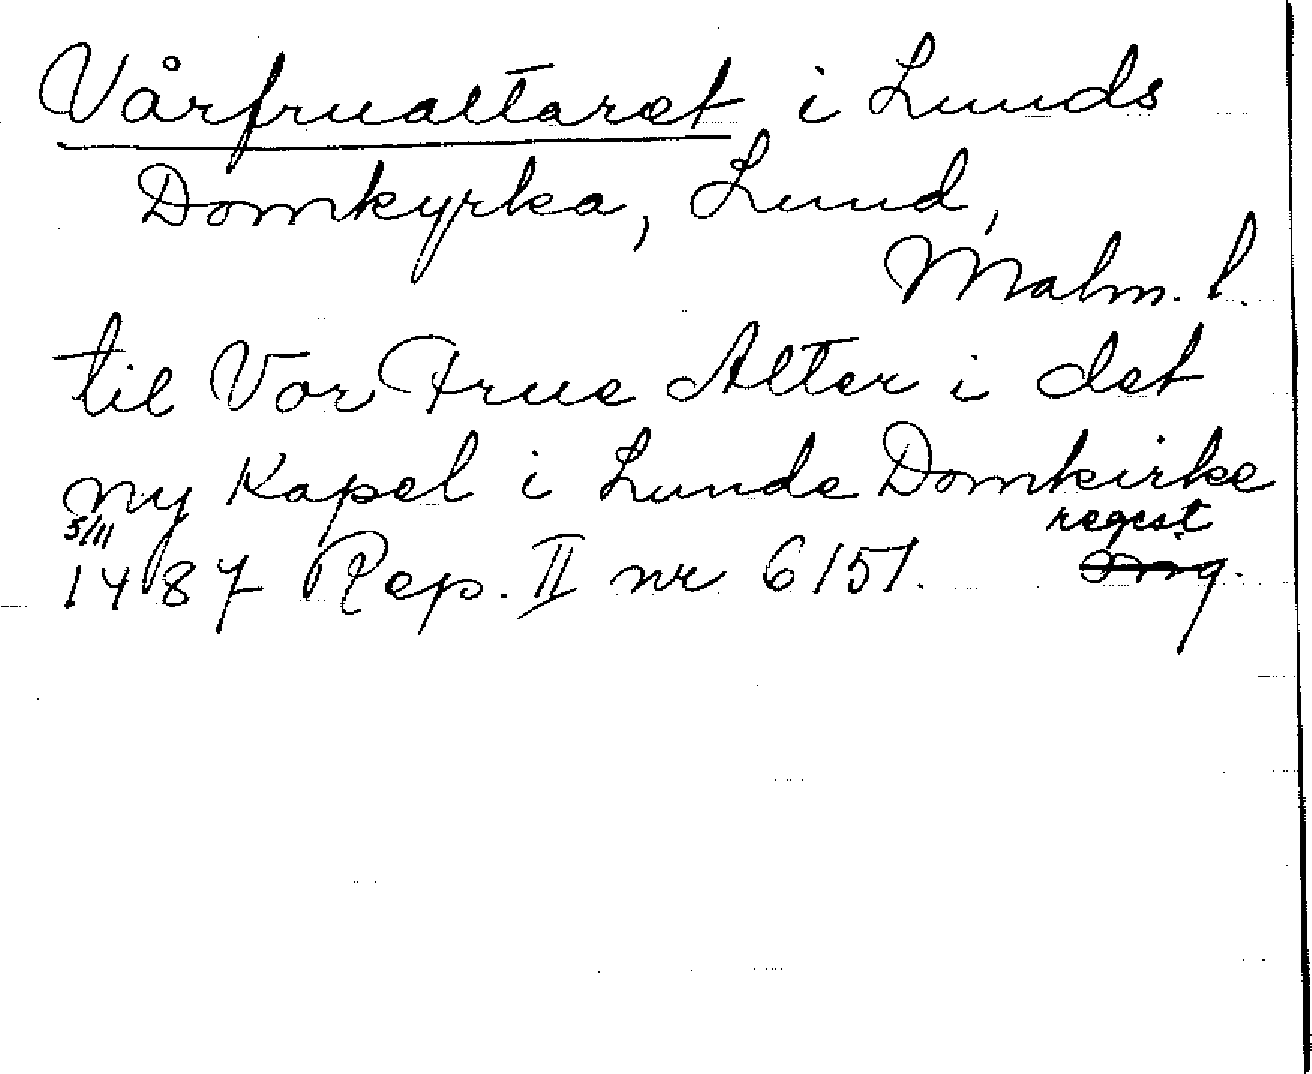 Vårfrualtaret i Lunds
Domkyrka, Lund,
Malm. l.
til Vor Frue Alter i det
ny Kapel i Lunde Domkirke
5/11 regest
1487 Rep. II nr 6151.